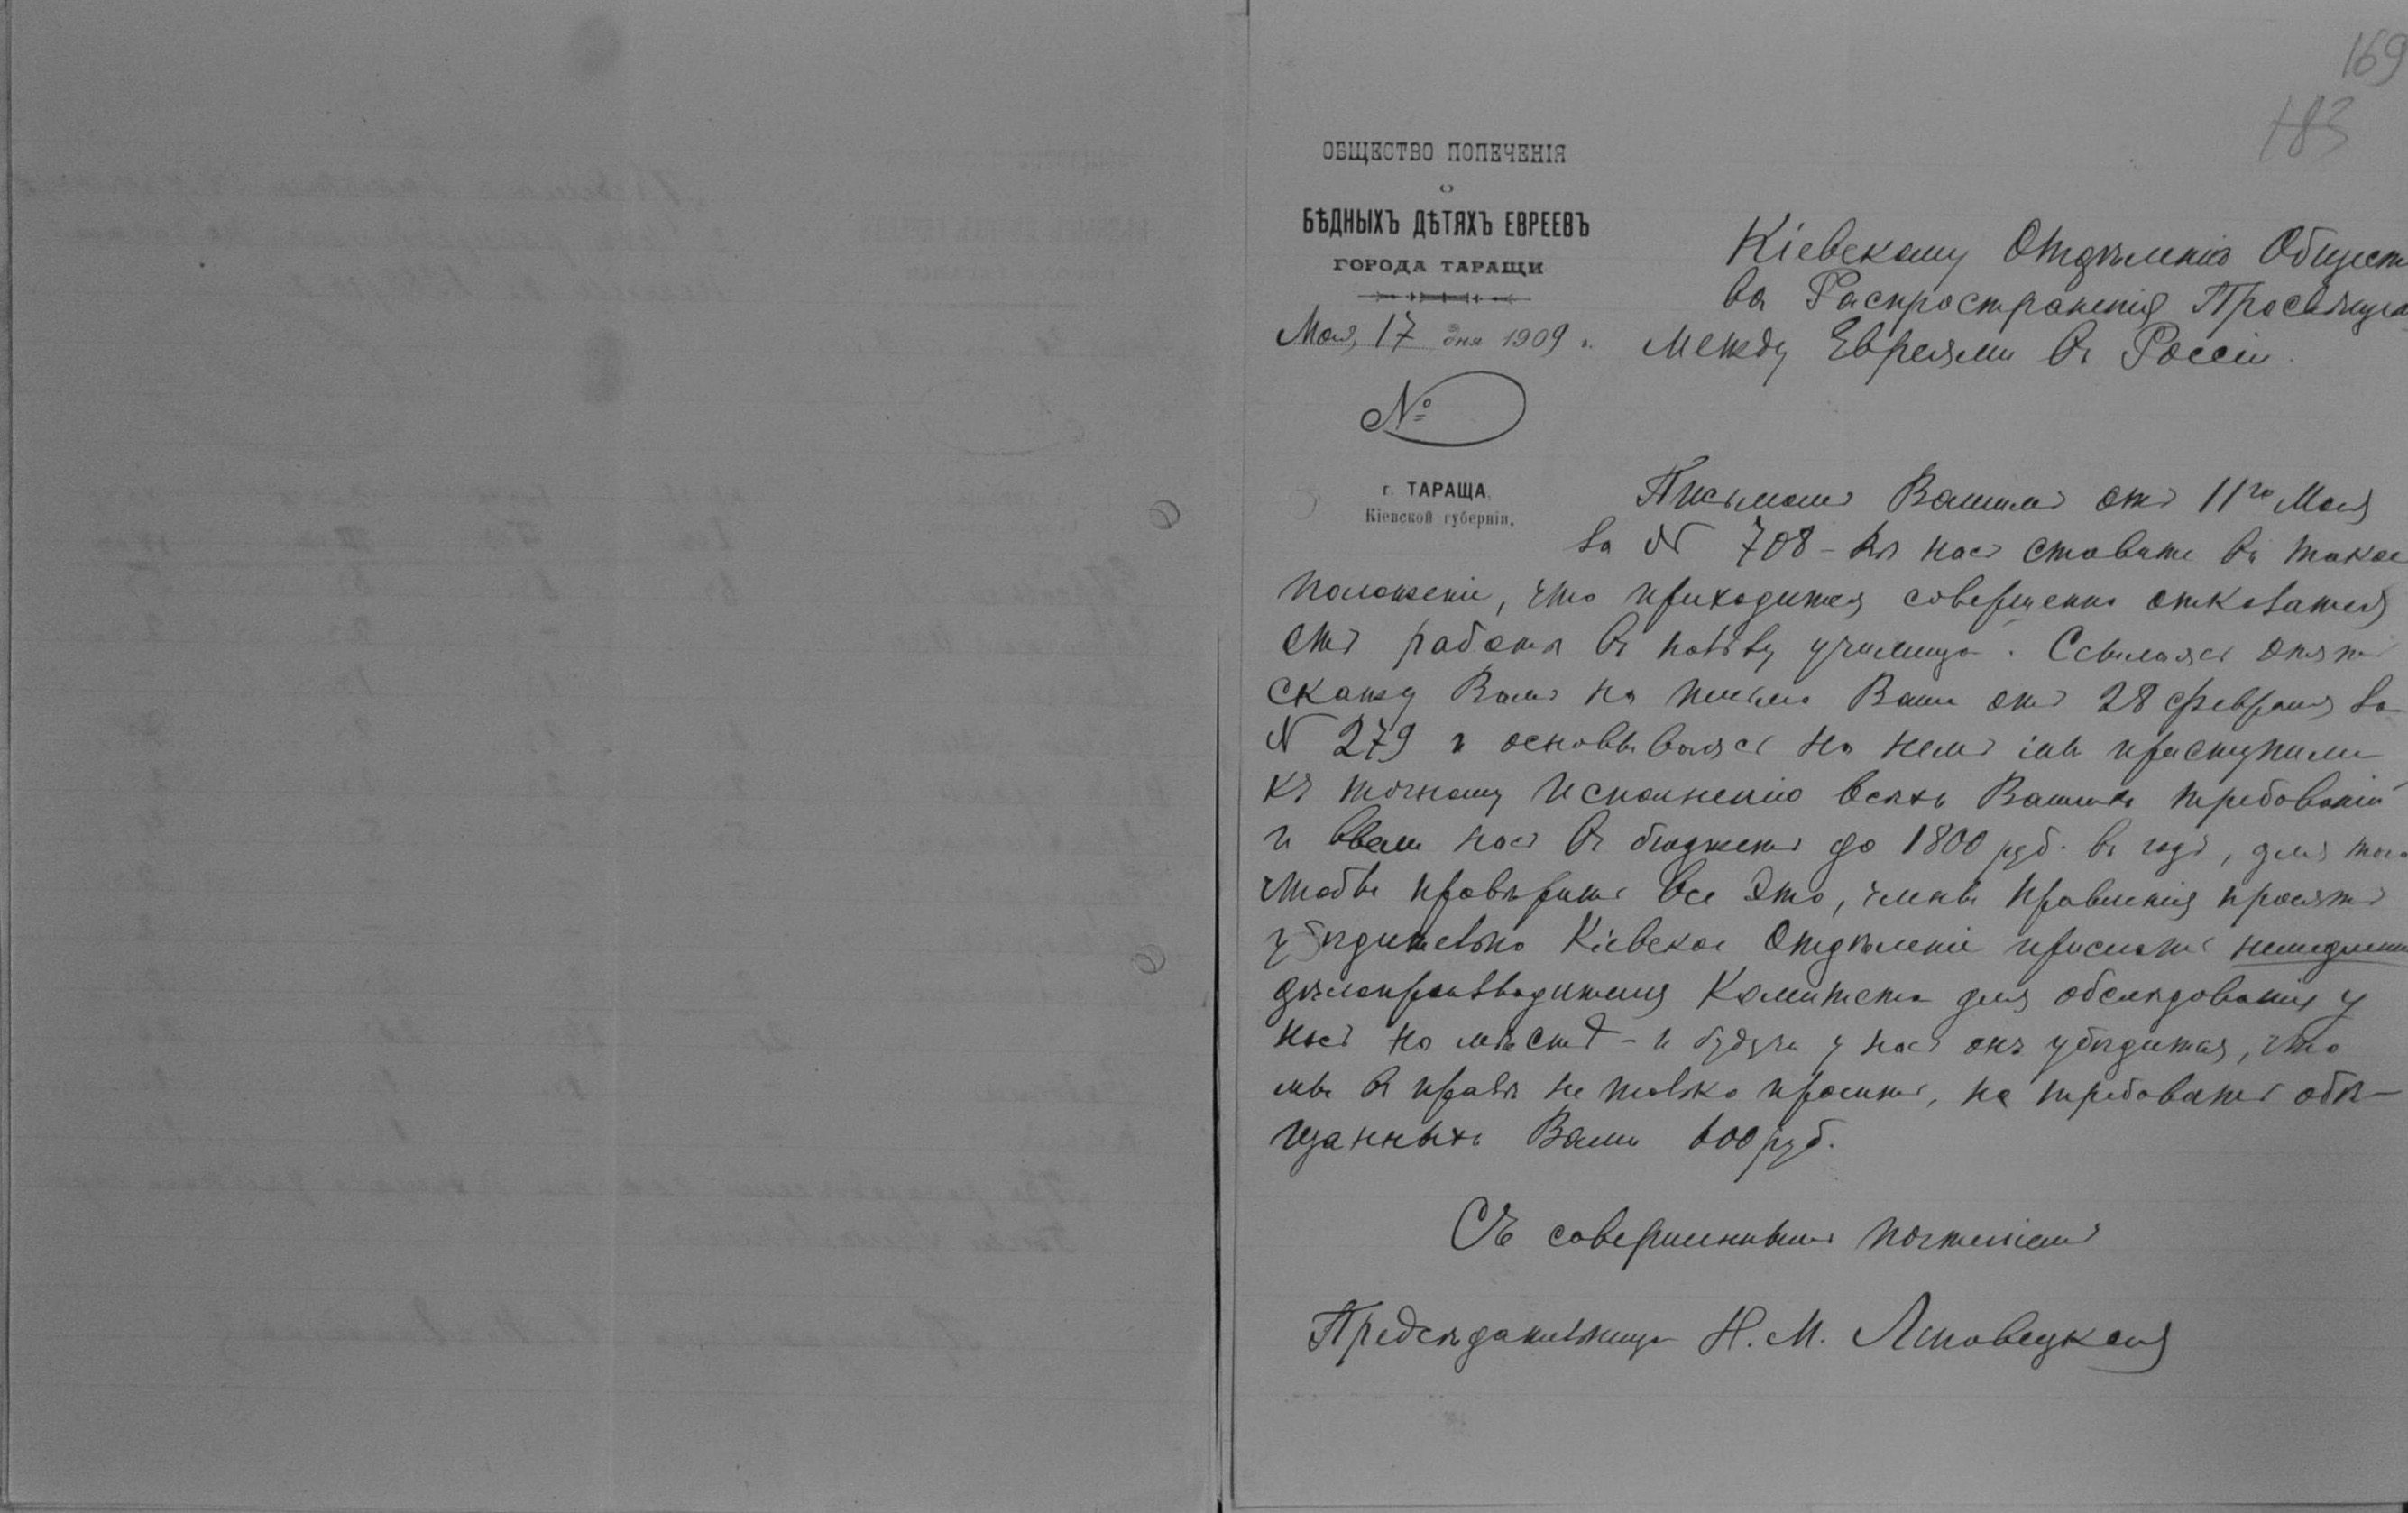 169
183
ОБЩЕСТВО ПОПЕЧЕНІЯ
о
БѢДНЫХЪ ДѢТЯХЪ ЕВРЕЕВЪ
ГОРОДА ТАРАЩИ
Мая, 17 дня 1909 г.
№
г. ТАРАЩА,
Кіевской губерніи.
Кіевскому Отдѣленію Общест
ва Распространенія Просвѣще
между Евреями въ Россіи.
Письмомъ Вашимъ отъ 11го Мая
за № 708 – Вы насъ ставите въ такое
положеніе, что приходится совершенно отказаться
отъ работы въ пользу училища. Ссылаясь опять
скажу Вамъ на письмо Ваше отъ 28 Февраля за
№ 279 и основываясь на немъ мы приступили
къ точному исполненію всѣхъ Вашихъ требованій
и ввели насъ въ бюджетъ до 1800 руб. въ годъ, для того
чтобы провѣрить все это, члены правленія просятъ
убѣдительно Кіевское Отдѣленіе прислать немедленно
дѣлопроизводителя Комитета для обслѣдованія у
насъ на мѣстѣ – и будучи у насъ онъ убѣдится, что
мы въ правѣ не только просить, но требовать обѣ–
щанныхъ Вами 600 руб.
Съ совершеннымъ почтеніемъ
Предсѣдательница Н. М.